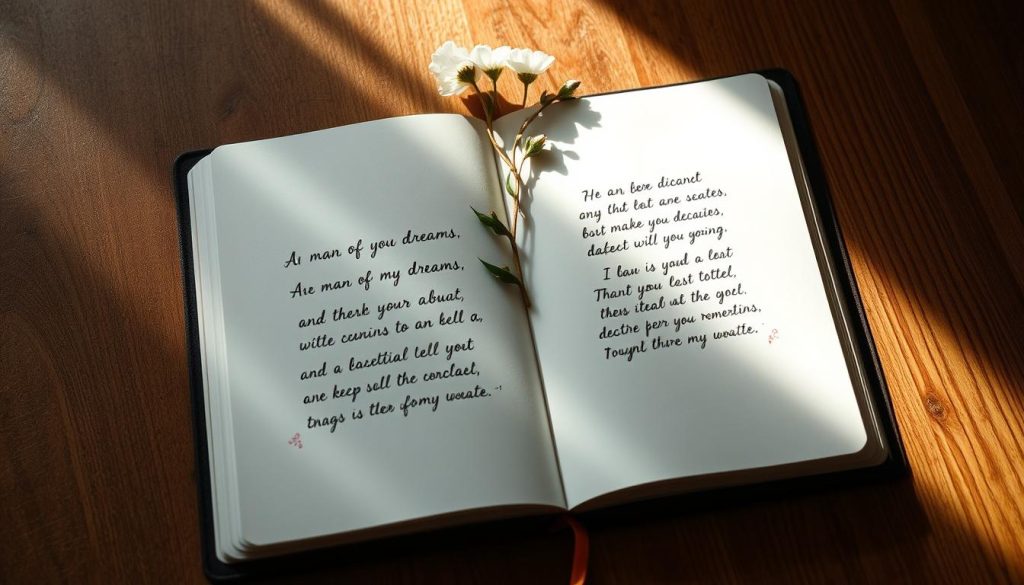 Aı man of you dreams,
Are man of my dreams,
and therk your abuat,
witte ccunins to an bell a,
and a bazettial lell yout
ane keep sell the conclact,
tnags is tler ofomy woate.
He an bexe dicanet
any thit bot ane seates,
bost make you decaries,
dafect will you yoring.
I bau is yaud a last
Thant you last tottel,
thers iteal ust the goel.
dectire perr you remertins,
Tougnl there my woatte.